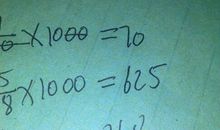 ×1000 = 70
5/8 × 1000 = 625